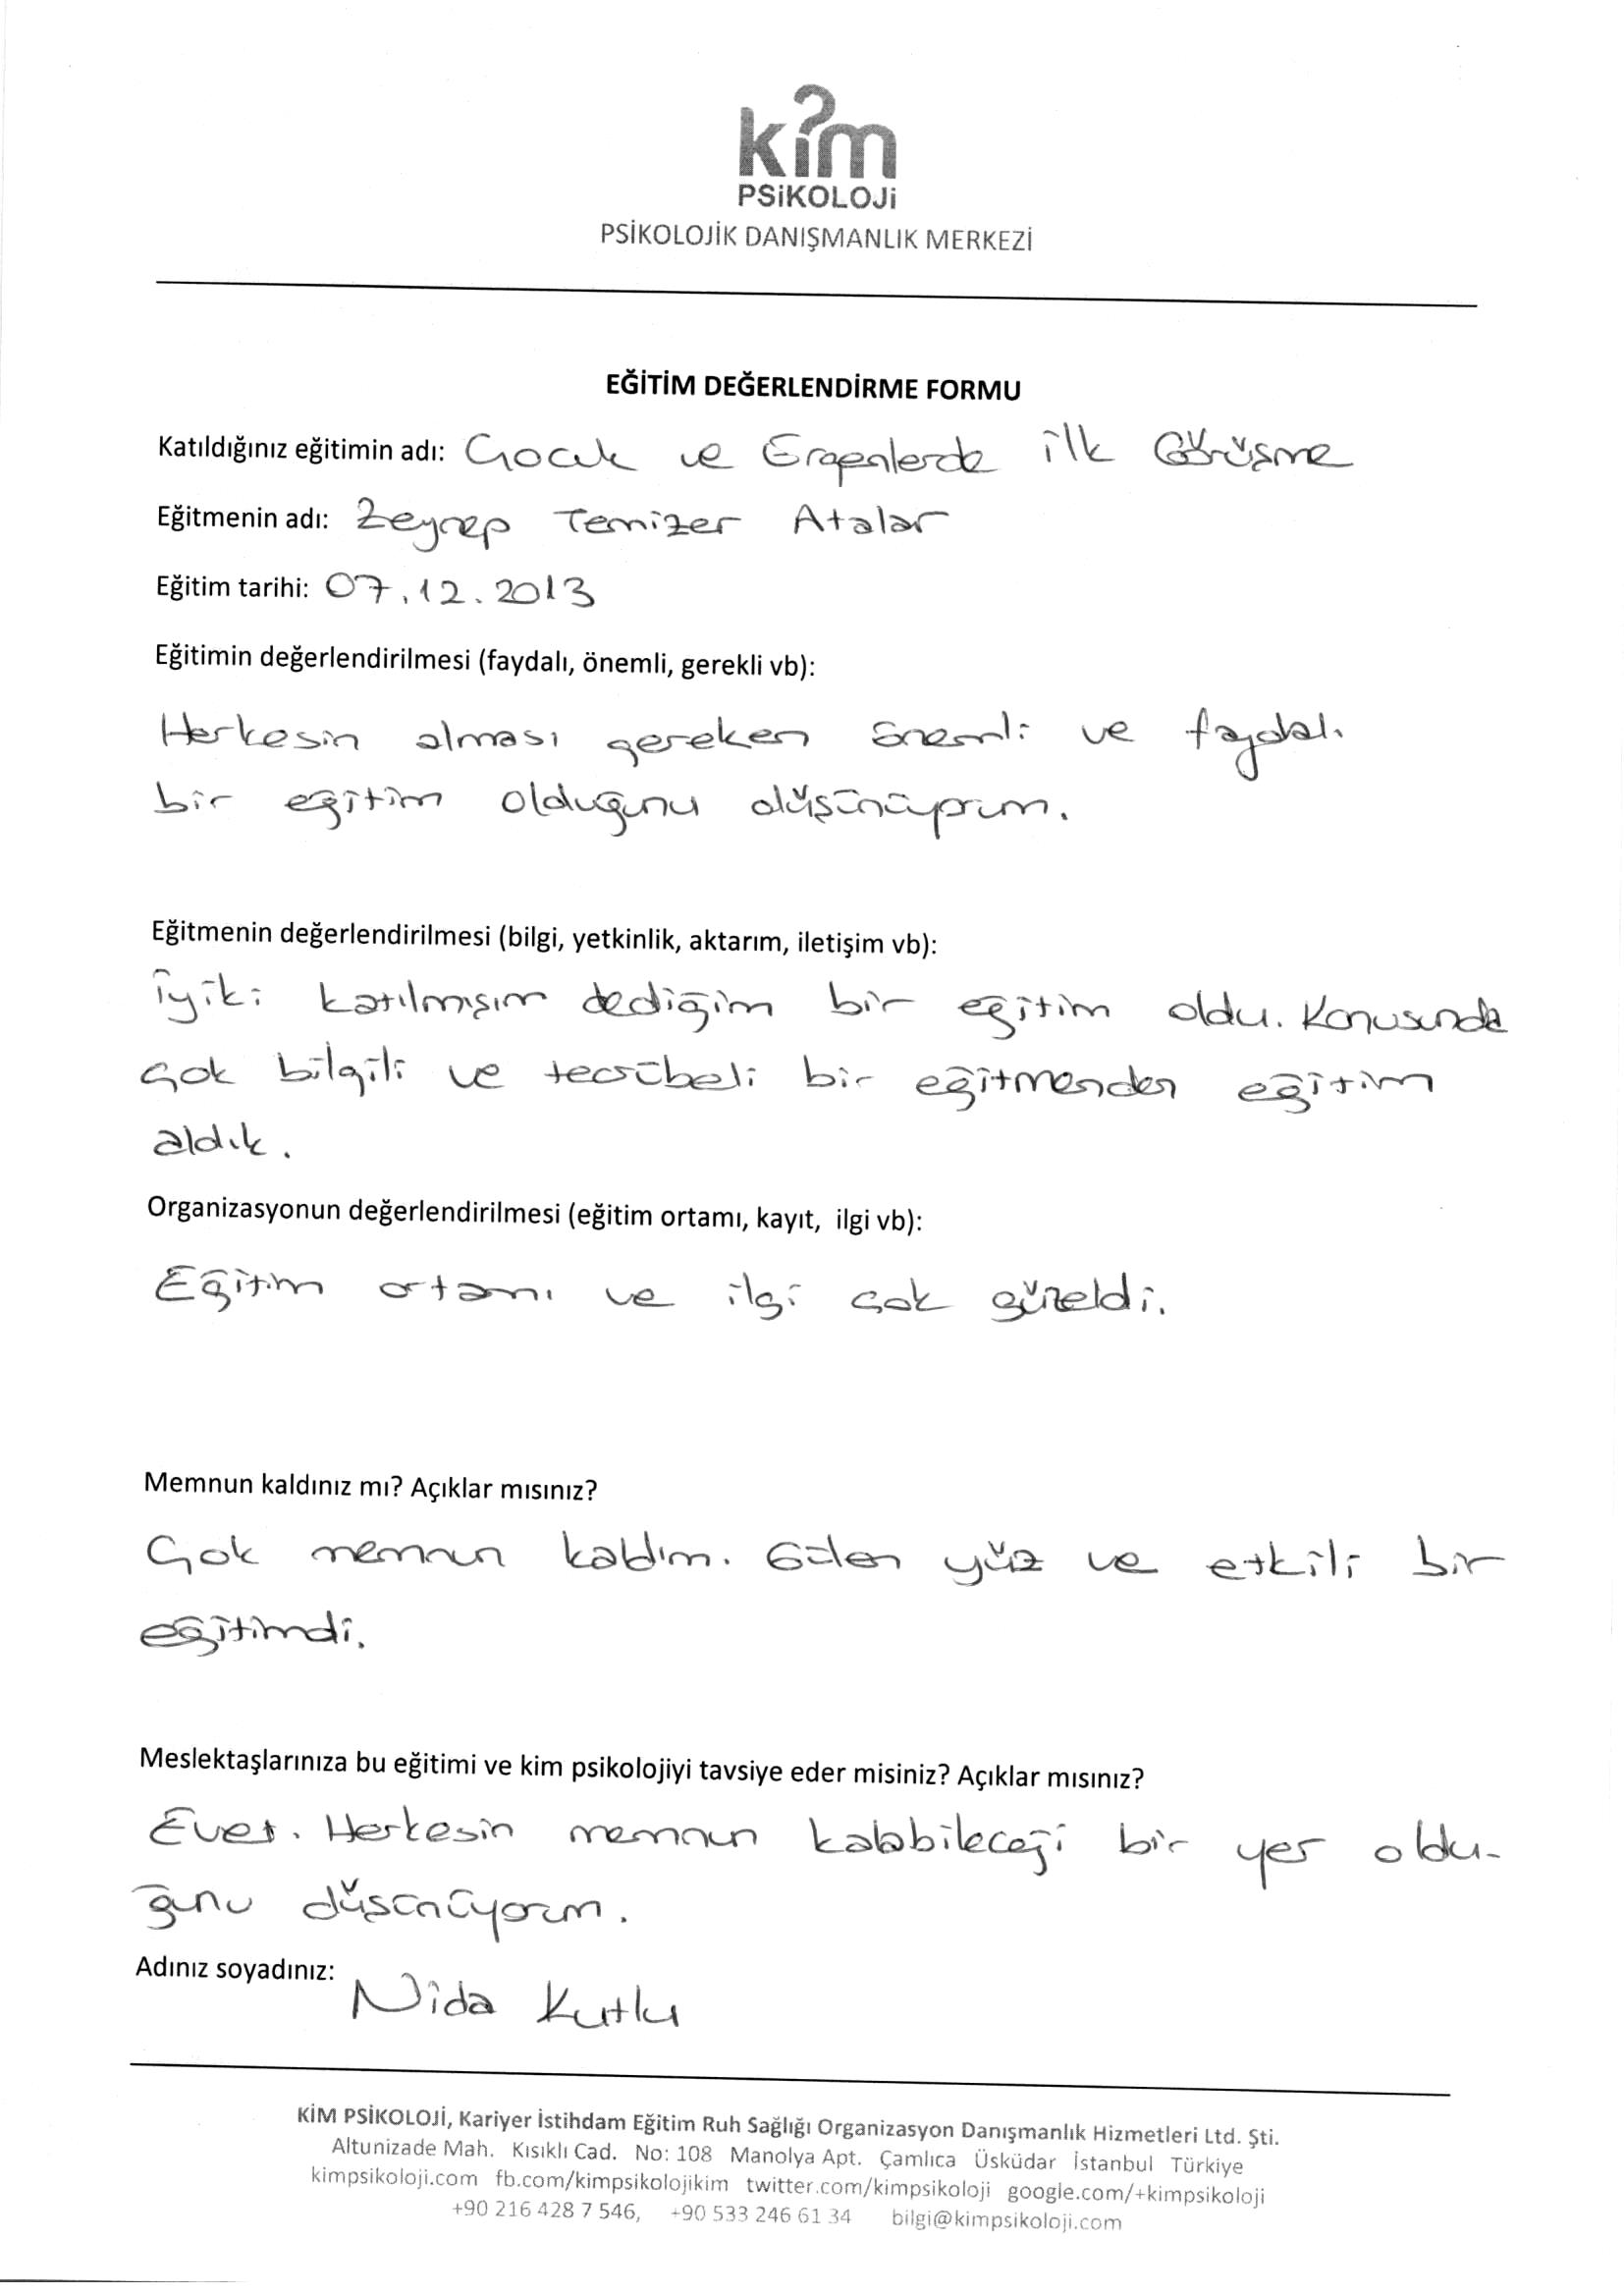 kim
PSiKOLOJi
PSİKOLOJİK DANIŞMANLIK MERKEZİ
EĞİTİM DEĞERLENDİRME FORMU
Katıldığınız eğitimin adı: Çocuk ve Ergenlerde ilk Görüşme
Eğitmenin adı: Zeynep Temizer Atalar
Eğitim tarihi: 07.12.2013
Eğitimin değerlendirilmesi (faydalı, önemli, gerekli vb):
Herkesin alması gereken önemli ve faydalı
bir eğitim olduğunu düşünüyorum.
Eğitmenin değerlendirilmesi (bilgi, yetkinlik, aktarım, iletişim vb):
İyiki katılmışım dediğim bir eğitim oldu. Konusunda
çok bilgili ve tecrübeli bir eğitmenden eğitim
aldık.
Organizasyonun değerlendirilmesi (eğitim ortamı, kayıt, ilgi vb):
Eğitim ortamı ve ilgi çok güzeldi.
Memnun kaldınız mı? Açıklar mısınız?
Çok memnun kaldım. Güler yüz ve etkili bir
eğitimdi.
Meslektaşlarınıza bu eğitimi ve kim psikolojiyi tavsiye eder misiniz? Açıklar mısınız?
Evet. Herkesin memnun kalabileceği bir yer oldu-
ğunu düşünüyorum.
Adınız soyadınız: Nida Kutlu
KİM PSİKOLOJİ, Kariyer İstihdam Eğitim Ruh Sağlığı Organizasyon Danışmanlık Hizmetleri Ltd. Şti.
Altunizade Mah. Kısıklı Cad. No: 108 Manolya Apt. Çamlıca Üsküdar İstanbul Türkiye
kimpsikoloji.com fb.com/kimpsikolojikim twitter.com/kimpsikoloji google.com/+kimpsikoloji
+90 216 428 7 546, +90 533 246 61 34 bilgi@kimpsikoloji.com